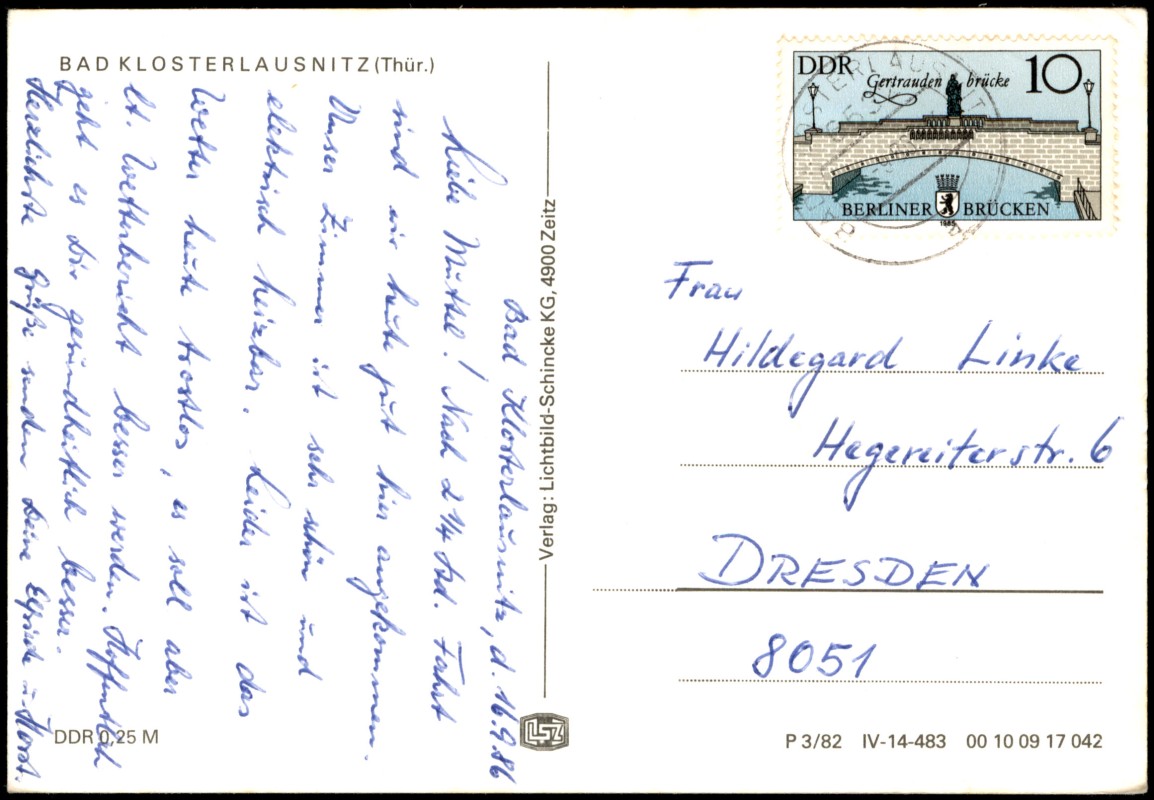 BAD KLOSTERLAUSNITZ (Thür.)
Bad Klosterlausnitz, d. 16.9.86
Liebe Muttel! Nach 2 ¼ Std. Fahrt
sind wir heute gut hier angekommen.
Unser Zimmer ist sehr schön und
elektrisch heizbar. Leider ist das
Wetter heute trostlos, es soll aber
lt. Wetterbericht besser werden. Hoffentlich
geht es Dir gesundheitlich besser.
Herzlichste Grüße senden Deine Elfriede u. Horst.
DDR 0,25 M
Verlag: Lichtbild-Schincke KG, 4900 Zeitz
LSZ
DDR
Gertrauden brücke
10
BERLINER BRÜCKEN
1985
Frau
Hildegard Linke
Hegereiterstr. 6
DRESDEN
8051
P 3/82 IV-14-483 00 10 09 17 042